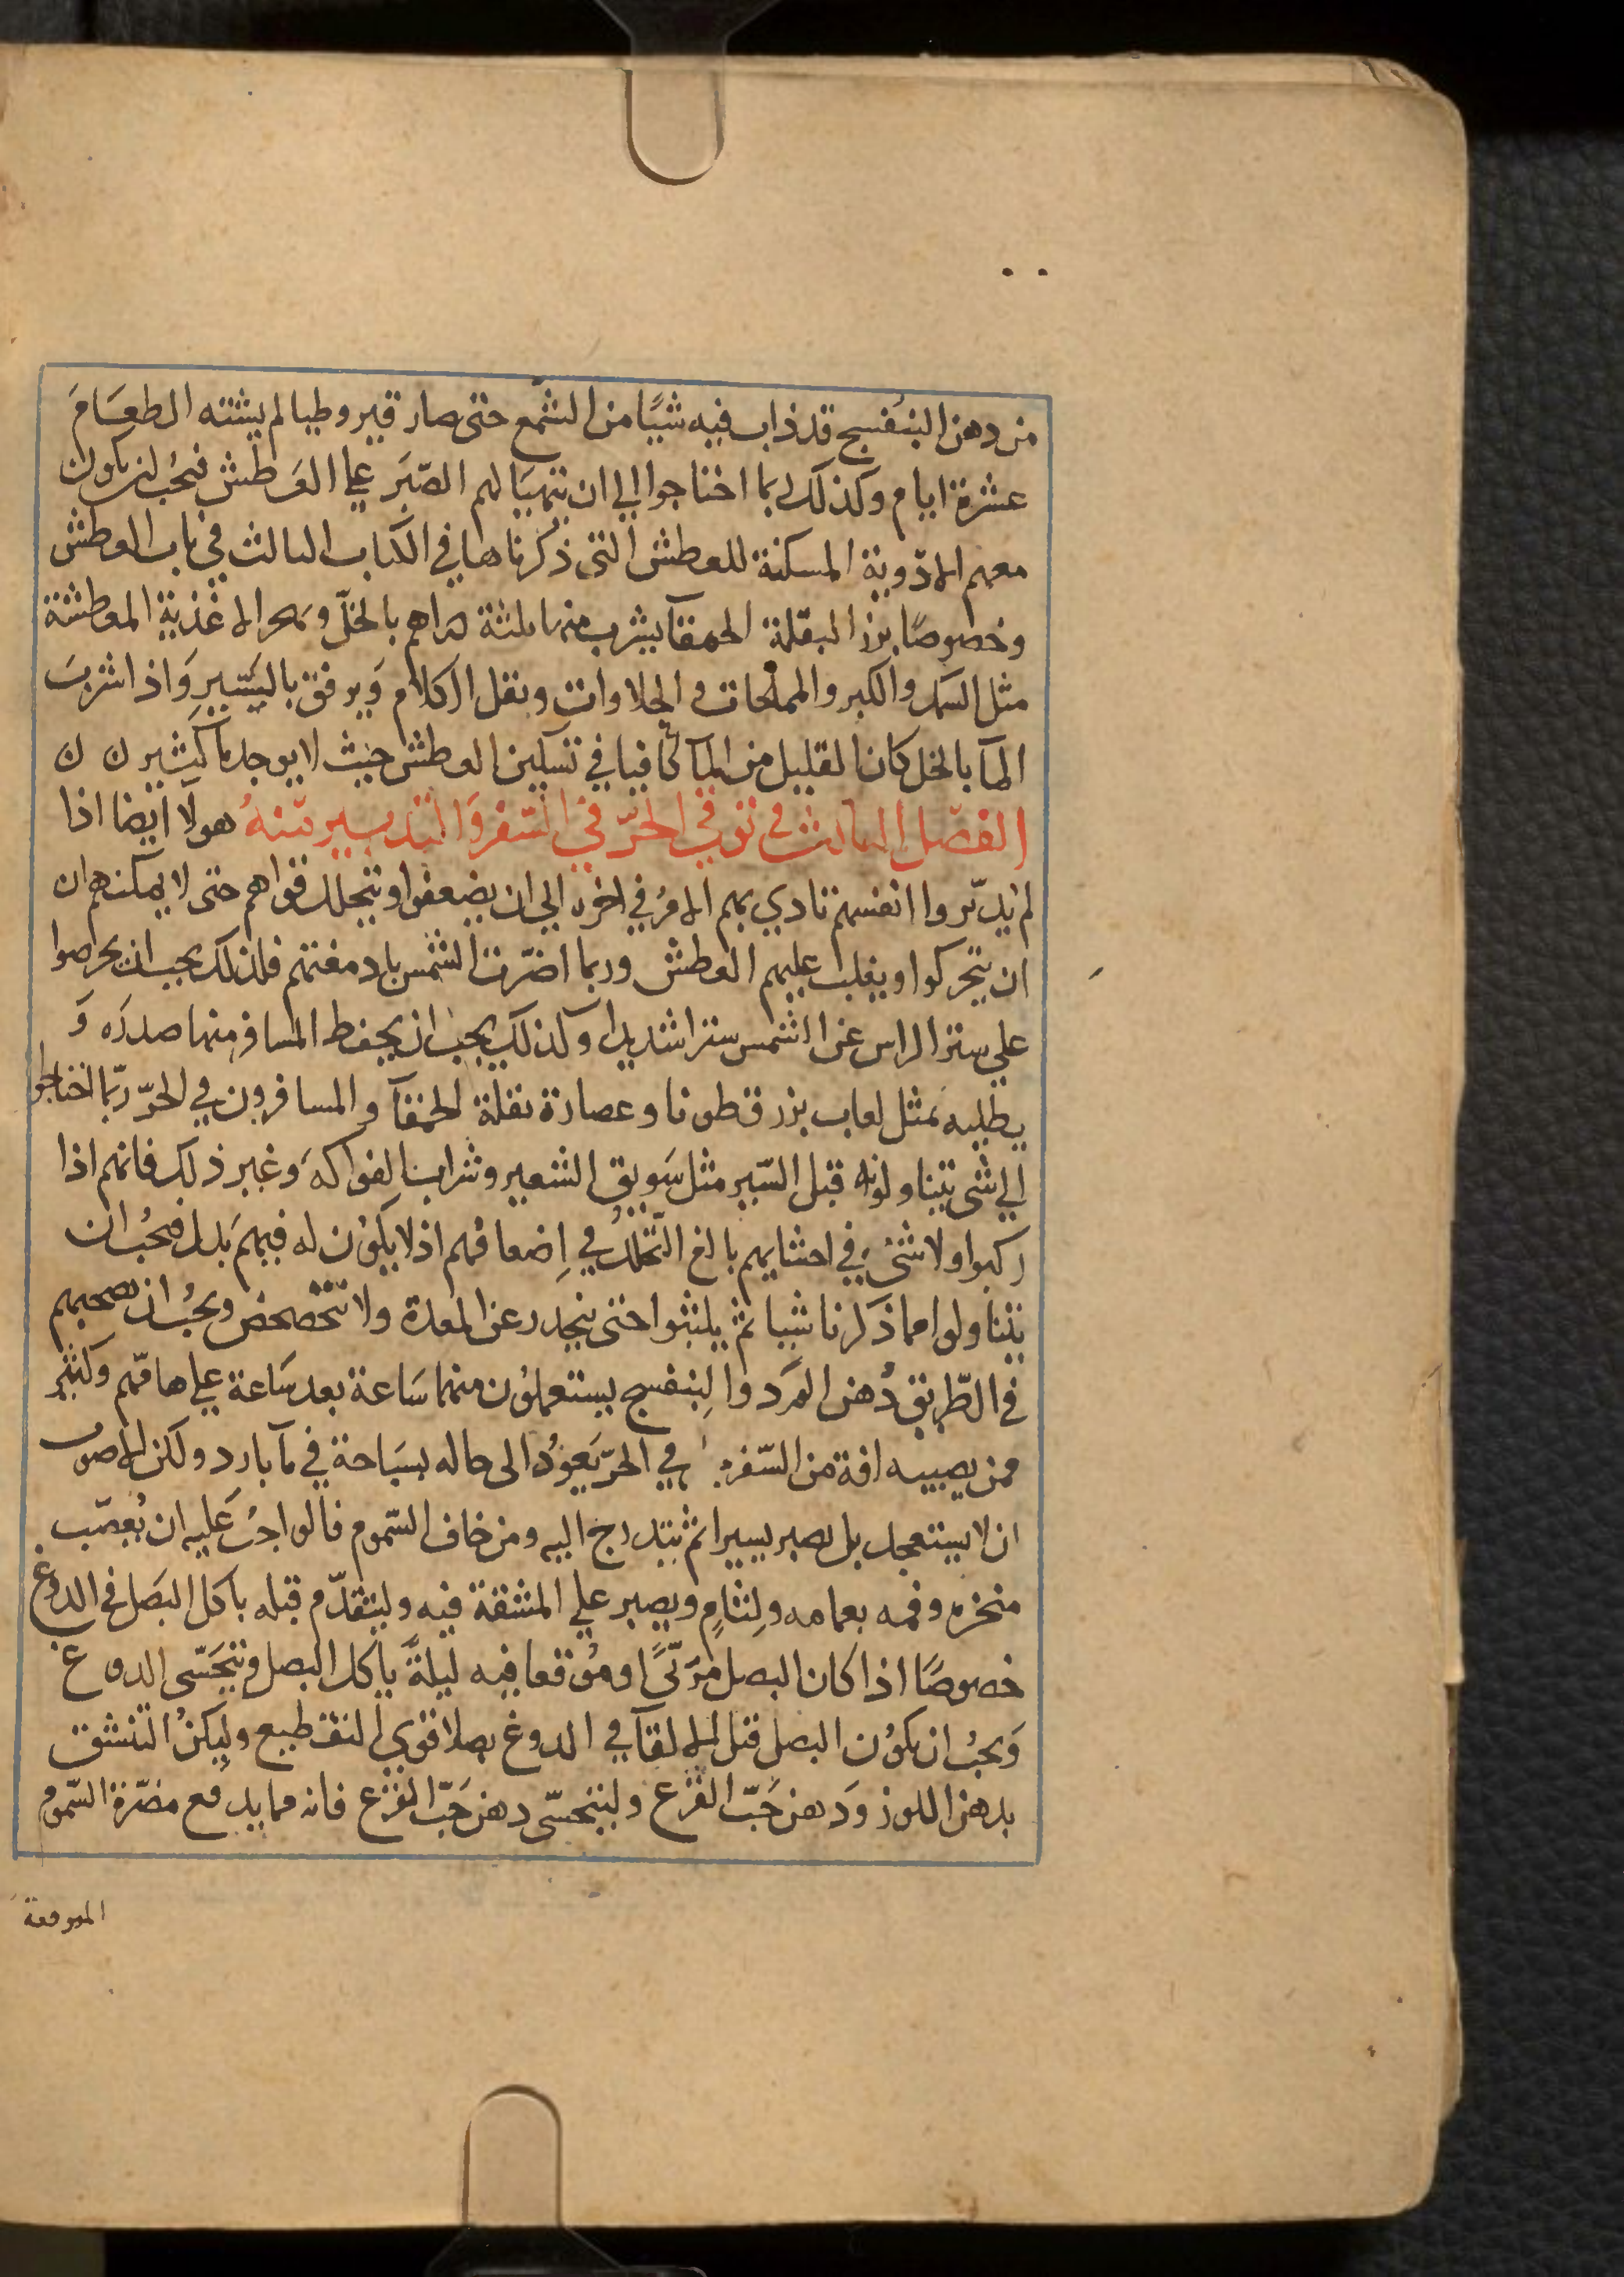 من دهن البنفسج قد ذاب فيه شيًا من الشمع حتى صار قيروطيا لم يشته الطعام
عشرة ايام وكذلك ربما احتاجوا الى ان يتهيا لهم الصبر على العطش فيجب ان يكون
معهم الادوية المسكنة للعطش التى ذكرناها في الكتاب الثالث في باب العطش
وخصوصًا بزر البقلة الحمقآ يشرب منها ثلثة دراهم بالخل ويهجر الاغذية المعطشة
مثل السمك والكبر والمملحات و الحلاوات ويقل الكلام ويرفق بالسير واذا شرب
المآ بالخل كان القليل من المآ كافيا في تسكين العطش حيث لا يوجد مآ كثير ن ن
الفصل الثالث في توقي الحرّ في السفر والتدبير فيه هولآ ايضا اذا
لم يدبّروا انفسهم تادي بهم الامر في اخره الى ان يضعفوا وتتحلل قواهم حتى لا يمكنهم ان
ان يتحركوا ويغلب عليهم العطش وربما اضرّت الشمس بادمغتهم فلذلك يجب ان يحرصوا
على ستر الراس عن الشمس سترا شديدا وكذلك يجب ان يحفظ المسافر منها صدره و
يطليه بمثل لعاب بزر قطونا وعصارة بقلة الحمقآ والمسافرون في الحرّ ربّما احتاجوا
الى شى يتناولونه قبل السّير مثل سَويق الشعير وشراب الفواكه وغير ذلك فانهم اذا
ركبوا ولا شئ في احشايهم بالغ التحلل في اِضعافهم اذ لا يكون له فيهم بَدل فيجُب ان
يتناولوا مما ذكرنا شيا ثم يلبثوا حتى ينحدر عن المعدة ولا يتخضخض ويجُب ان يصحبهم
في الطّريق دُهن الورد والبنفسج يستعملون منهما سَاعة بعد سَاعة على هامهم وكثير
ممن يصيبه افة من السّفر في الحرّ يَعوُد الى حاله بسبَاحة في مآ بارد ولكن الاصوب
ان لا يستعجل بل يصبر يسيرا ثم يتدرج اليه ومن خاف السّموم فالواجبُ عَليه ان يُعصّب
منخره وفمه بعمامه ولِثامٍ ويصبر على المشقة فيه وليتقدّم قبله باكل البَصل في الدوغ
خصوصًا اذا كان البصل مربّىً او مُنقعا فيه ليلةً ياكل البصل ويتحَسّى الدوغ
وَيجبُ ان يكوُن البصل قبل الالقآ في الدوغ بصلا قوي التقطيع وليكنُ التنشق
بدهن اللوز وَدهن حَبّ القَرع وليتحسّى دهن حَبّ القرع فانه مما يدفع مضرّة السّموم